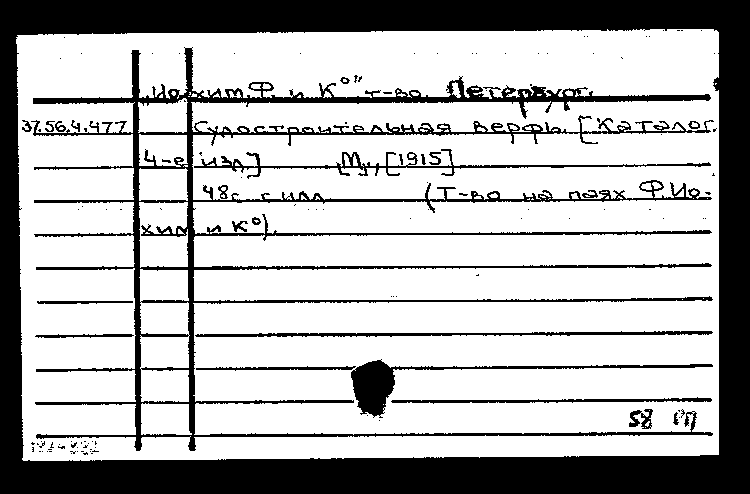 „Иохим, Ф. и К°" т-во. Петербург.
37.56.4.477 Судостроительная верфь. [Каталог.
4-е изд] [М., [1915]
48с. с илл. (Т-во на паях Ф. Ио-
хим и К°).
58 РП